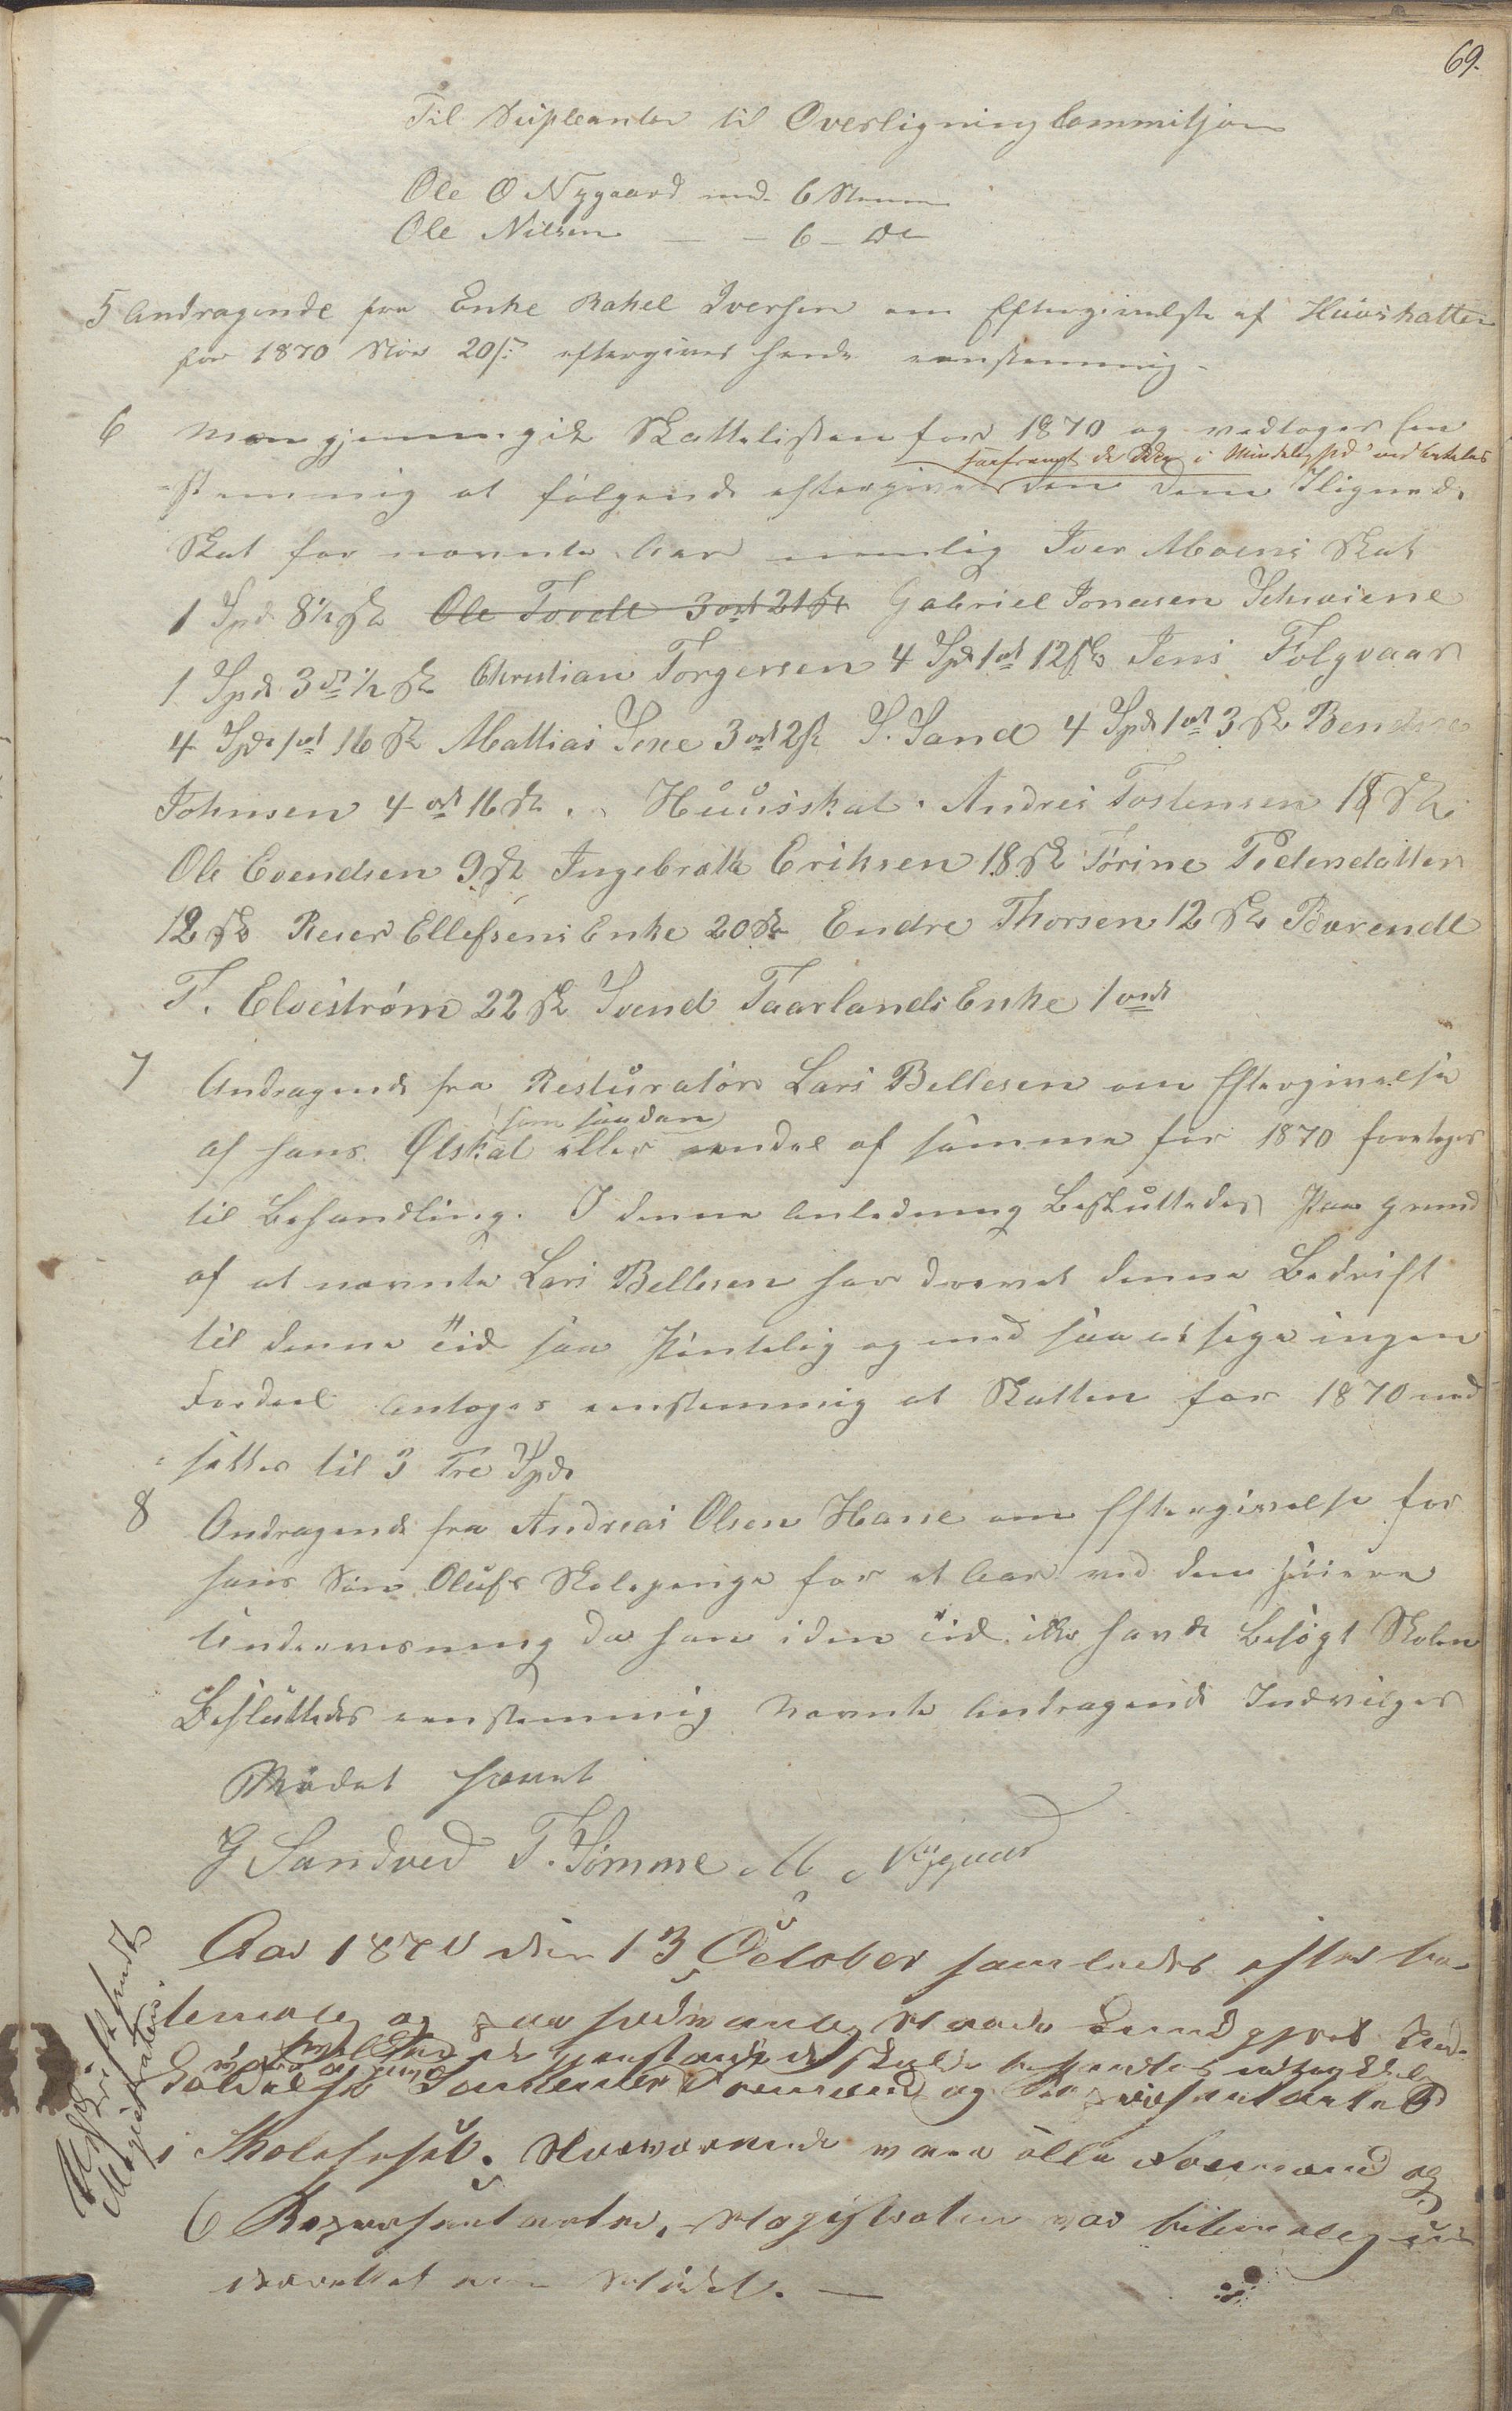 69.
Til Supleanter til Overligning Commitjon
Ole O Nygaard med 6 Stemmer
Ole Nilsen — — 6 — Do
5 Andragende fra Enke Rahel Iversen om Eftergivelse af Huusskatten
for 1870 Stor 20 s: eftergives hende eenstemmig.
6 Man gjennemgik Skattelisten for 1870 og vedtoges een
Saafremt de ikke i Mindelighed indbetales
stemmig at følgende eftergives den dem Ilignede
Skat for nævnte Aar nemlig Iver Moens Skat
1 Spd 8½ sk Ole Tvedt 3 ort 21 sk Gabriel Jonasen Schreiene
1 Spd 3 ort ½ sk Christian Torgersen 4 Spd 1 ort 12 sk Jens Følgvaar
4 Spd 1 ort 16 sk Mattias Sexe 3 ort 2 sk S. Sand 4 Spd 1 ort 3 sk Bendix
Johnsen 4 ort 16 sk. Huusskat. Andreis Tostensen 18 sk
Ole Evendsen 9 sk Ingebrett Eriksen 18 sk Torine Pedersdatter
12 sk Reier Ellefsens Enke 20 sk Endre Thorsen 12 sk Barendt
T. Elvestrøm 22 sk Svend Taarlands Enke 1 ort
7 Andragende fra Resturatør Lars Bellesen om Eftergivelse
som saadan
af hans Ølskat eller eendel af samme for 1870 foretages
til Behandling. I denne Anledning Besluttedes Paa grund
af at nævnte Lars Bellesen har drevet denne Bedrift
til denne Tid saa Püntelig og med saa at sige ingen
Fordeel antoges eenstemmig at Skatten for 1870 ned
sættes til 3 Tre Spd
8 Andragende fra Andreas Olsen Hane om Eftergivelse for
hans Søn Olufs Skolepenge for et Aar ved den høiere
Undervisning da han i den Tid ikke havde Besøgt Skolen
Besluttedes eenstemmig Nævnte Andragende Indvilges
Mødet hævet
G Sandved T. Sømme M Nygaard
Aar 1870 den 13 October samledes efter be-
temmelse og paa sædvanlig Maade kundgjort Ind-
kaldelse Formænd og Repræsentanter
i Skolehuset. Nærværende vare alle Formænd og
6 Repræsentanter. Magistraten var betimelig un-
derrettet om Mødet. —
Udskrift sendt
Magistraten